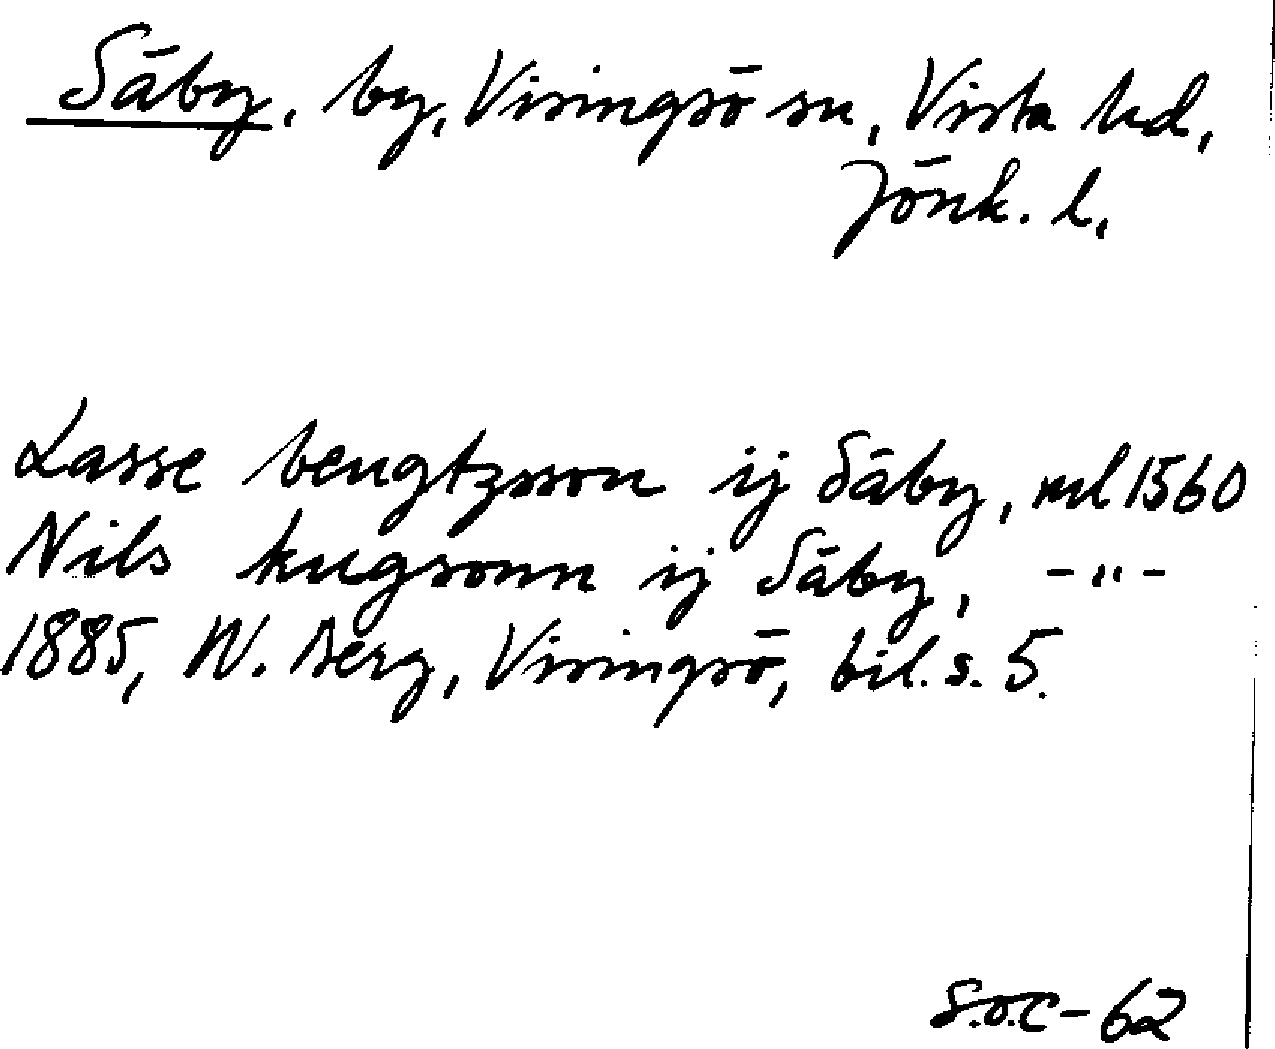 Säby, by, Visingsö sn, Vista hd,
Jönk. l.
Lasse bengtzsson ij Säby, ml 1560
Nils kugsonn ij Säby, -"-
1885, W. Berg, Visingsö, bil. s. 5.
S.O.C-62